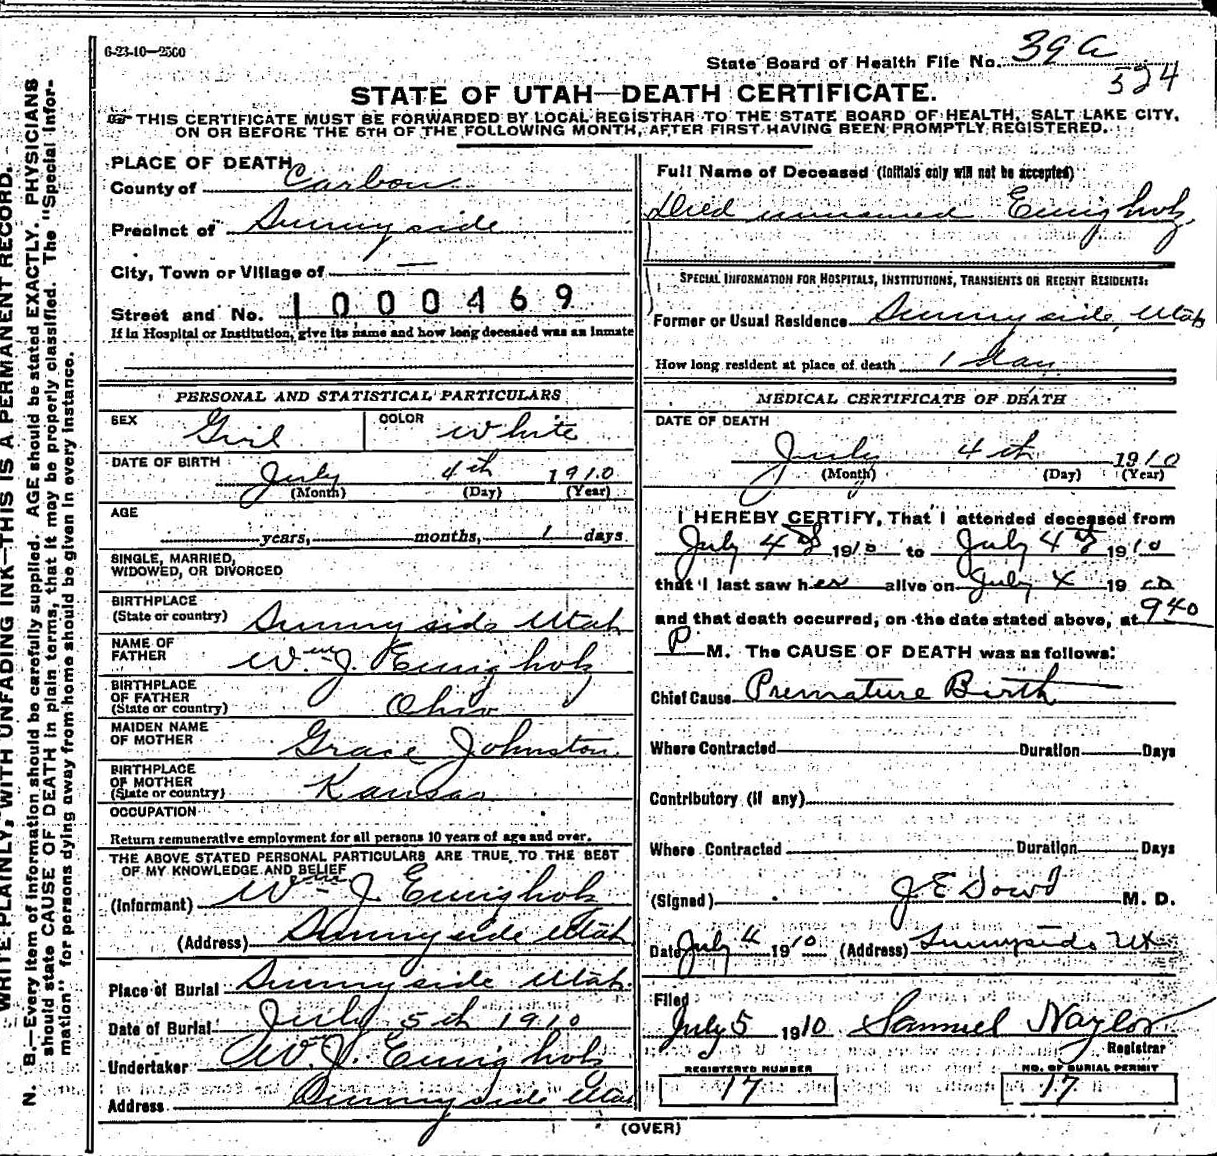 6-23-10—2560
State Board of Health File No. 39 a
524
STATE OF UTAH—DEATH CERTIFICATE.
THIS CERTIFICATE MUST BE FORWARDED BY LOCAL REGISTRAR TO THE STATE BOARD OF HEALTH, SALT LAKE CITY,
ON OR BEFORE THE 5TH OF THE FOLLOWING MONTH, AFTER FIRST HAVING BEEN PROMPTLY REGISTERED.
WRITE PLAINLY, WITH UNFADING INK—THIS IS A PERMANENT RECORD.
N. B.—Every item of information should be carefully supplied. AGE should be stated EXACTLY. PHYSICIANS
should state CAUSE OF DEATH in plain terms, that it may be properly classified. The "Special Infor-
mation" for persons dying away from home should be given in every instance.
PLACE OF DEATH
County of Carbon
Precinct of Sunnyside
City, Town or Village of —
Street and No. 1000469
If in Hospital or Institution, give its name and how long deceased was an inmate
PERSONAL AND STATISTICAL PARTICULARS
SEX Girl COLOR White
DATE OF BIRTH July 4th 1910
(Month) (Day) (Year)
AGE
years, months, 1 days
SINGLE, MARRIED,
WIDOWED, OR DIVORCED
BIRTHPLACE
(State or country) Sunnyside Utah
NAME OF
FATHER Wm J. Emigholz
BIRTHPLACE
OF FATHER
(State or country) Ohio
MAIDEN NAME
OF MOTHER Grace Johnston
BIRTHPLACE
OF MOTHER
(State or country) Kansas
OCCUPATION
Return remunerative employment for all persons 10 years of age and over.
THE ABOVE STATED PERSONAL PARTICULARS ARE TRUE TO THE BEST
OF MY KNOWLEDGE AND BELIEF
(Informant) Wm J. Emigholz
(Address) Sunnyside Utah
Place of Burial Sunnyside Utah.
Date of Burial July 5th 1910
Undertaker W. J. Emigholz
Address Sunnyside Utah
Full Name of Deceased (Initials only will not be accepted)
Died unnamed Emigholz
SPECIAL INFORMATION FOR HOSPITALS, INSTITUTIONS, TRANSIENTS OR RECENT RESIDENTS:
Former or Usual Residence Sunnyside, Utah
How long resident at place of death 1 day
MEDICAL CERTIFICATE OF DEATH
DATE OF DEATH
July 4th 1910
(Month) (Day) (Year)
I HEREBY CERTIFY, That I attended deceased from
July 4th 1910 to July 4th 1910
that I last saw her alive on July 4 19
and that death occurred, on the date stated above, at 940
P M. The CAUSE OF DEATH was as follows:
Chief Cause Premature Birth
Where Contracted Duration Days
Contributory (if any)
Where Contracted Duration Days
(Signed) J E Dowd M. D.
Date July 4 1910 (Address) Sunnyside Ut
Filed
July 5 1910 Samuel Naylor
Registrar
REGISTERED NUMBER
17
NO. OF BURIAL PERMIT
17
(OVER)